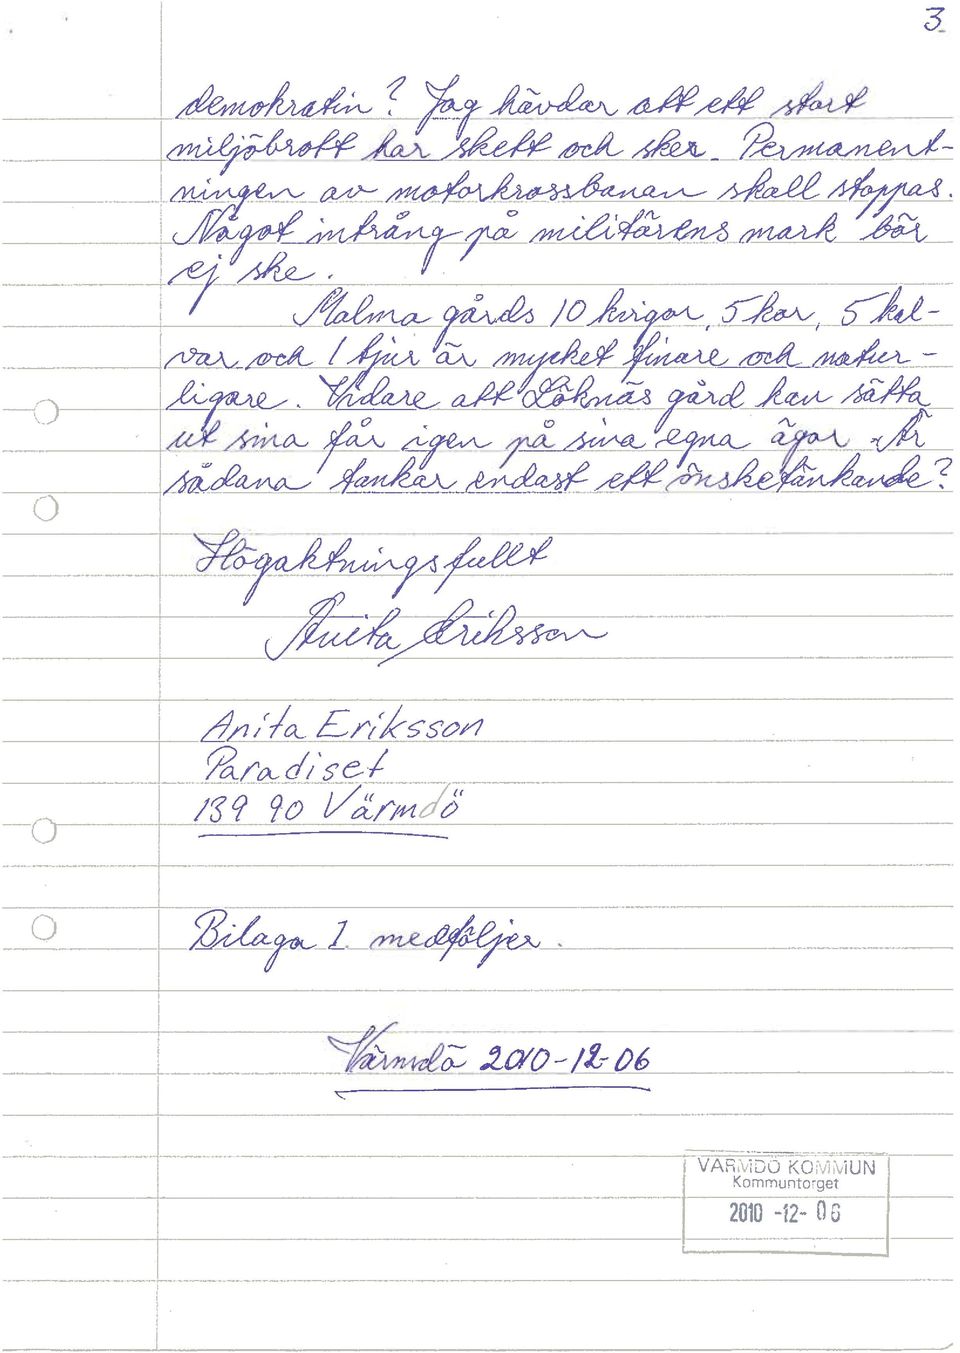 3.
demokratin? Jag hävdar att ett stort
miljöbrott har skett och sker. Permanent-
ningen av motorkrossbanan skall stoppas.
Något intrång på militärens mark bör
ej ske.
Malma gårds 10 kvigor, 5 kor, 5 kal-
var och 1 tjur är mycket finare och natur-
ligare. Vidare att Löknäs gård kan sätta
ut sina får igen på sina egna ägor. Är
sådana tankar endast ett önsketänkande?
Högaktningsfullt
Anita Eriksson
Anita Eriksson
Paradiset
139 90 Värmdö
Bilaga 1. medföljer.
Värmdö 2010-12-06
VÄRMDÖ KOMMUN
Kommuntorget
2010 -12- 06